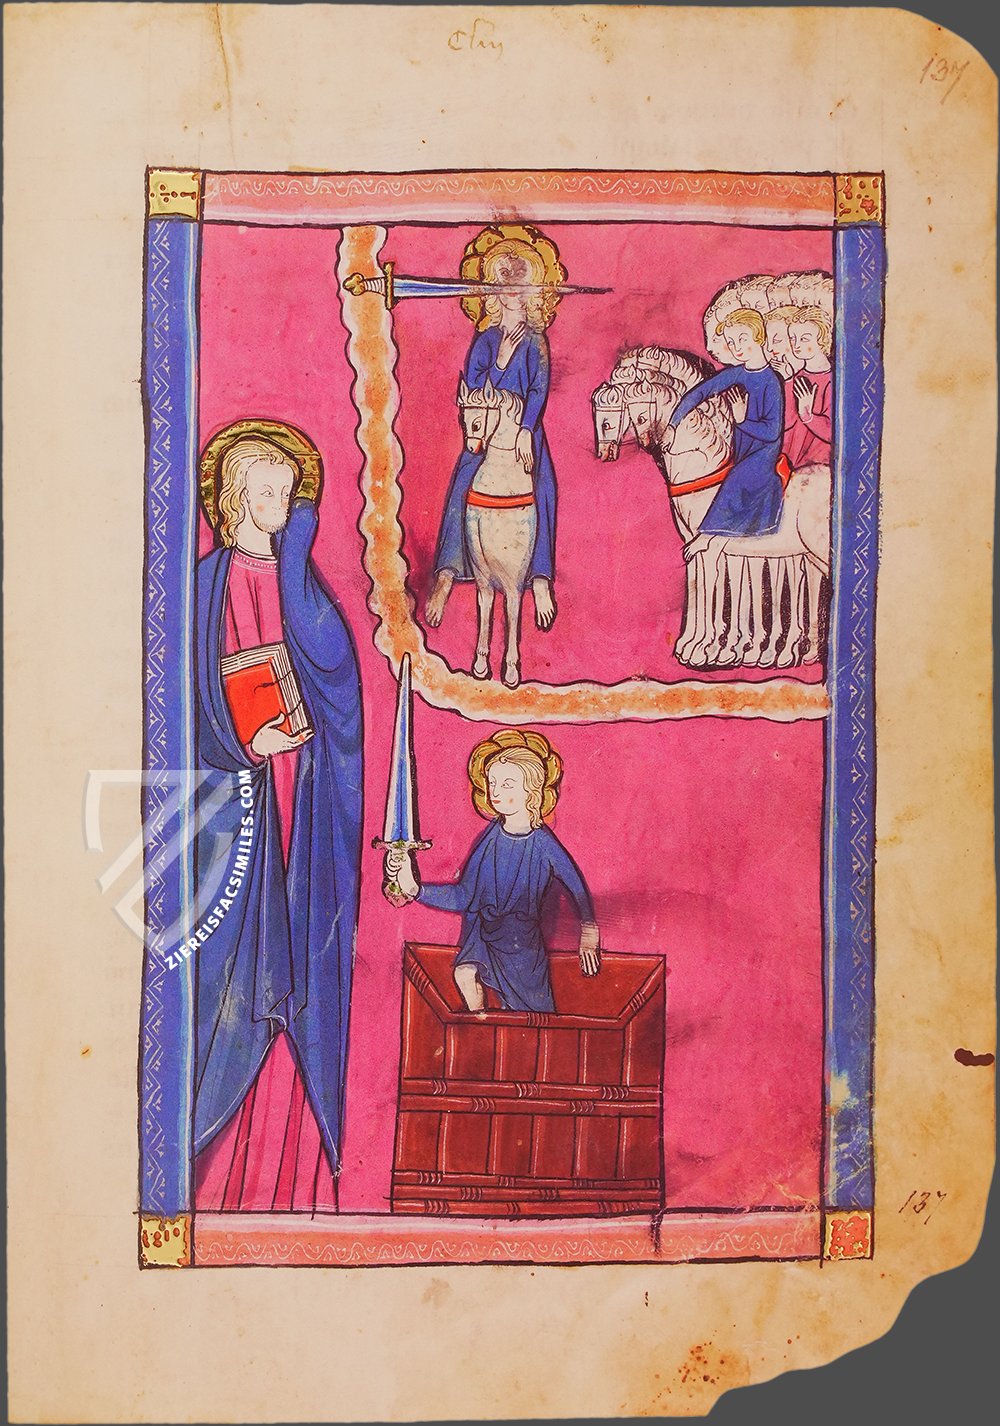 137
ZIEREISFACSIMILES.COM
137